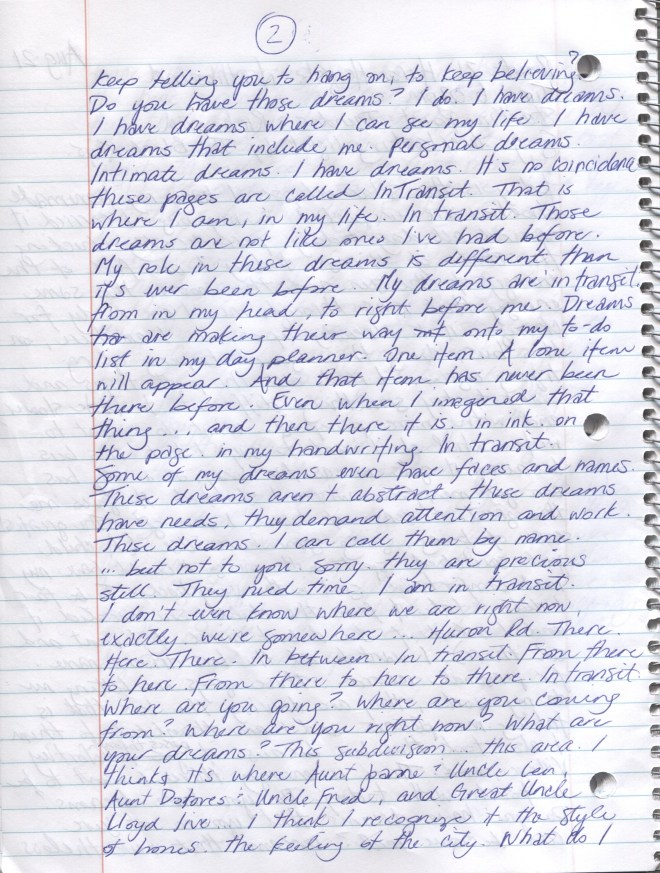 2
Keep telling you to hang on, to keep believing?
Do you have those dreams? I do. I have dreams.
I have dreams where I can see my life. I have
dreams that include me. Personal dreams.
Intimate dreams. I have dreams. It's no coincidence
these pages are called InTransit. That is
where I am, in my life. In transit. Those
dreams are not like ones I've had before.
My role in these dreams is different than
it's ever been before. My dreams are in transit.
from in my head, to right before me. Dreams
are making their way onto my to-do
list in my day planner. One item. A lone item
will appear. And that item has never been
there before. Even when I imagined that
thing... and then there it is. in ink. on
the page. in my handwriting. In transit.
Some of my dreams even have faces and names.
These dreams aren't abstract. these dreams
have needs, they demand attention and work.
These dreams. I can call them by name.
... but not to you. Sorry. they are precious
still. They need time. I am in transit.
I don't even know where we are right now,
exactly. we're somewhere... Huron Rd. There.
Here. There. In between. In transit. From there
to here. From there to here to there. In transit.
Where are you going? Where are you coming
from? Where are you right now? What are
your dreams? This subdivision.. this area. I
think it's where Aunt & Uncle Len,
Aunt Dolores & Uncle Fred, and Great Uncle
Lloyd live... I think I recognize the style
of homes. the feeling of the city. What do I